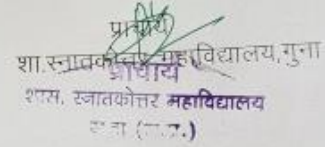 प्राचार्य
शा.स्नातकोत्तर महाविद्यालय,गुना
प्राचार्य
शास. स्नातकोत्तर महाविद्यालय
(म.प्र.)